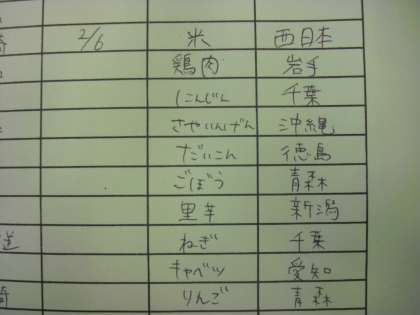 2/6 米 西日本
鶏肉 岩手
にんじん 千葉
さやいんげん 沖縄
だいこん 徳島
ごぼう 青森
里芋 新潟
道 ねぎ 千葉
キャベツ 愛知
崎 りんご 青森